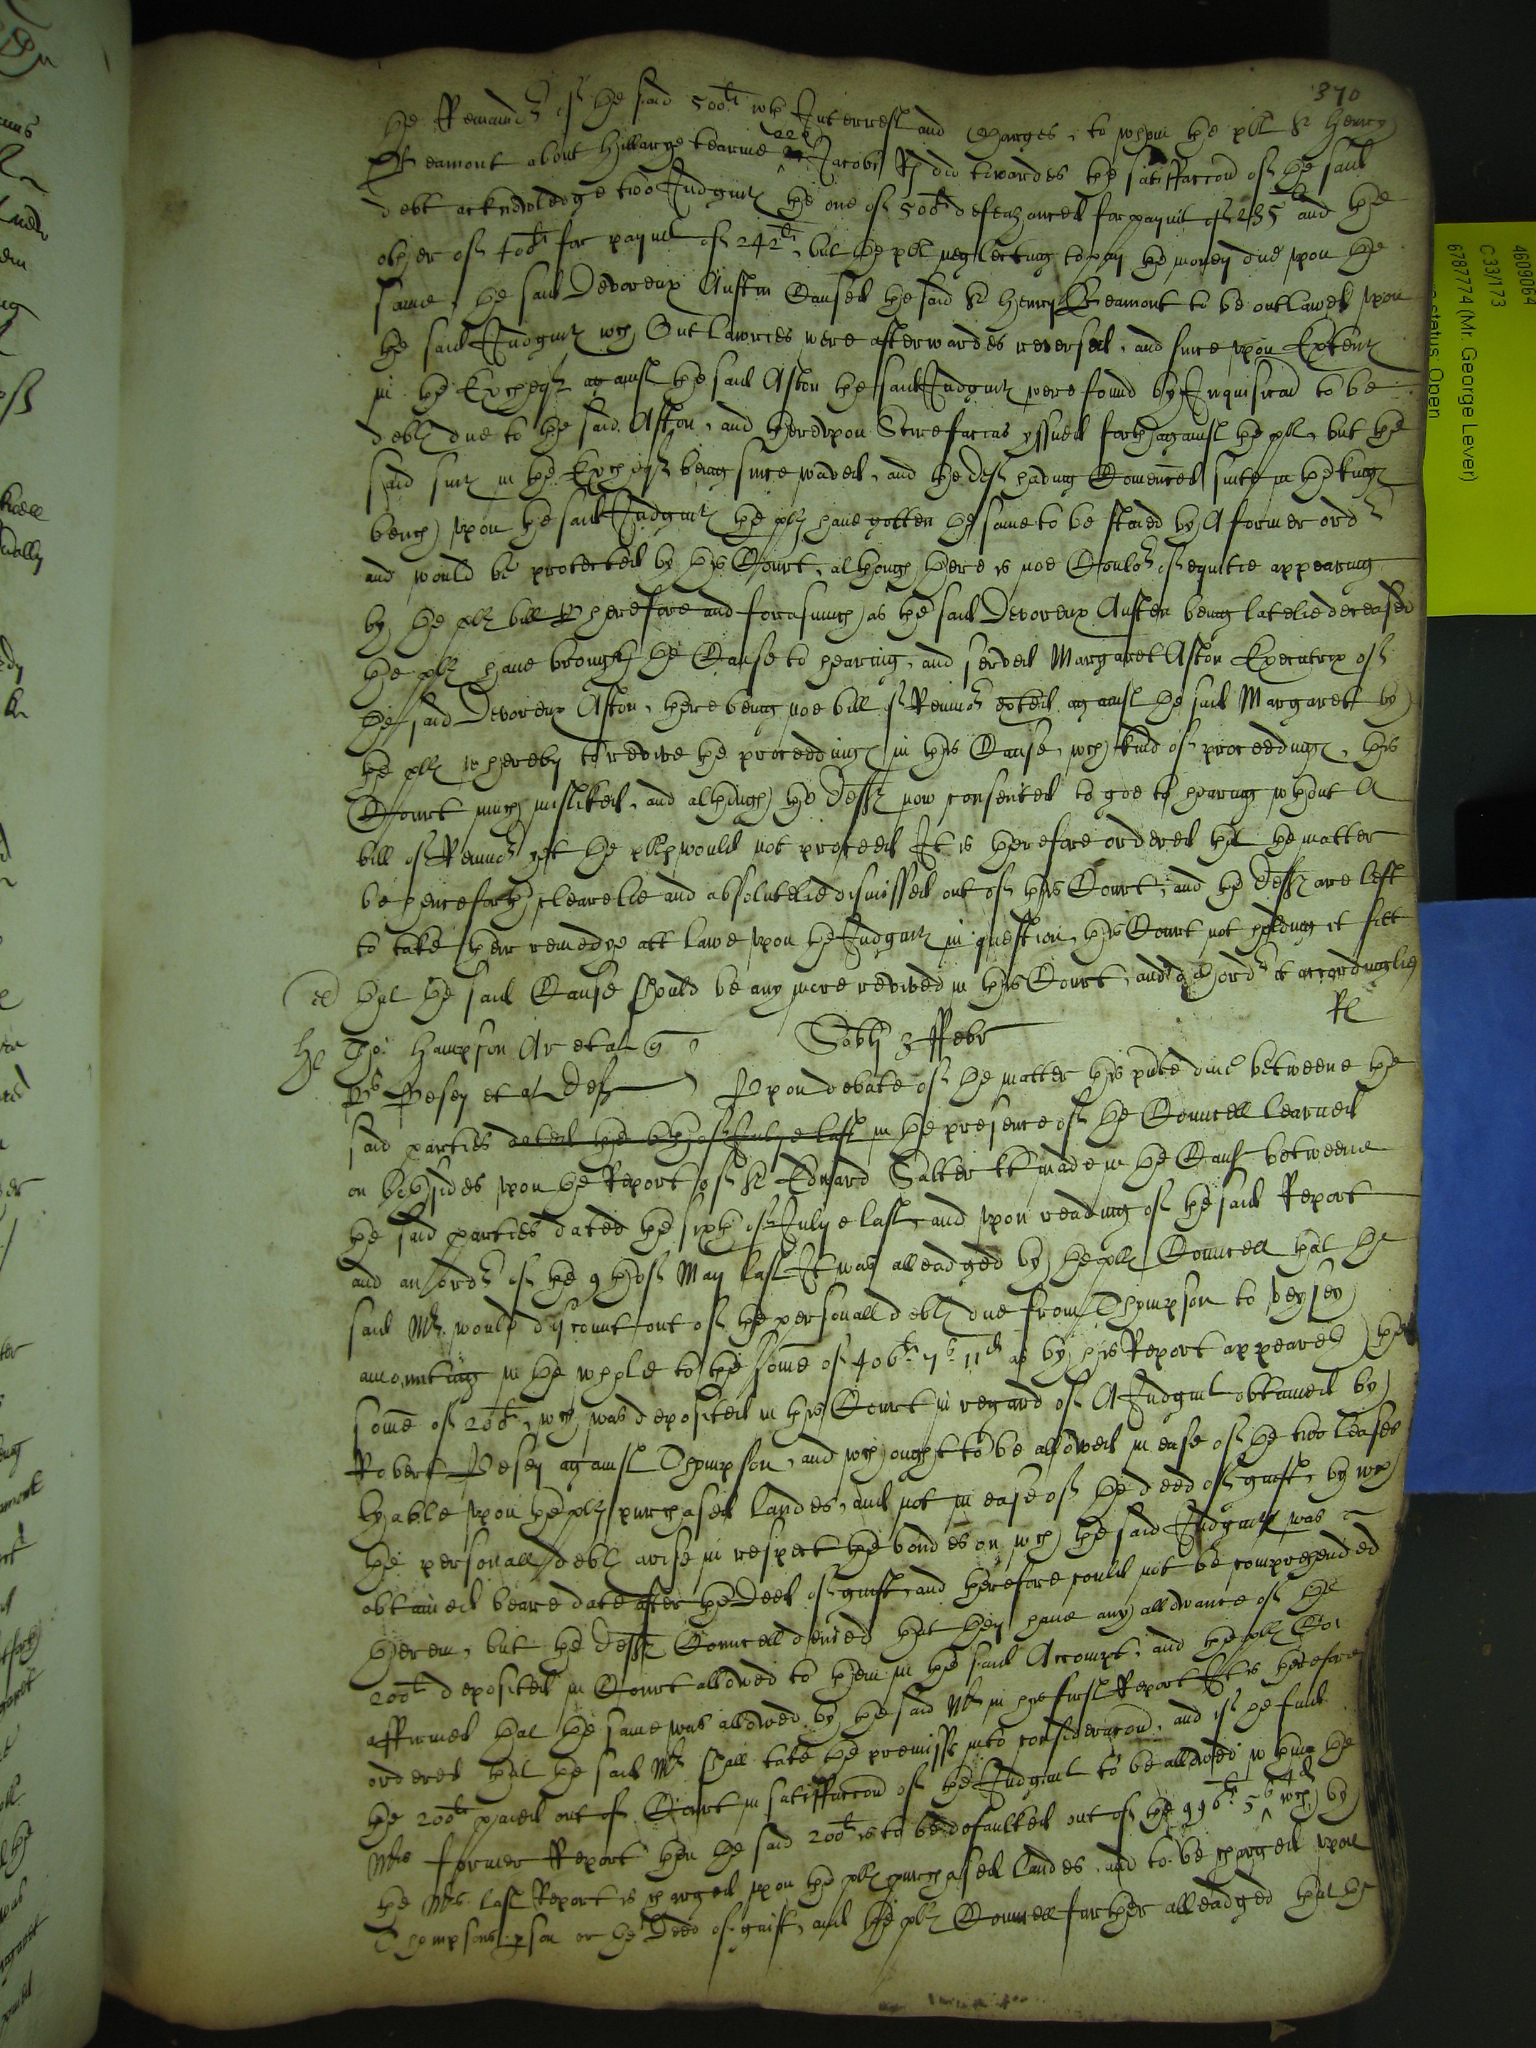 370
the Remaindr of the said 500li wth Interrest and Charges, to whom the pll Sr Henry
Beamont about Hillarye tearme 22o Jacobi R did towardes the satisfaccon of the said
debt acknowledge two Judgmts the one of 500li defeazanced for paymt of 235li and the
other of 400li for paymt of 242li, but the pll neglecting to pay the money due upon the
same, the said Devoreux Austin Caused the said Sr Henry Beamont to be outlawed upon
the said Judgmts wch Outlawries were afterwardes reversed, and since upon Extents
in the Excheqr against the said Aston the said Judgmts were found by Inquisicon to be
debts due to the said Aston, and thereupon Scirefacias yssued forth against the pll, but the
said suit in the Excheqr being since waived, and the deft having Comenced suite in the kings
bench upon the said Judgmts the plls have gotten the same to be staied by A former ordr
and would be protected by this Court, although there is noe Coulor of equitie appearing
by the plls bill Wherefore and forasmuch as the said Devoreux Austen being latelie deceased
the plls have brought the Cause to hearing, and served Margaret Aston Executrix of
the said Devoreux Aston, there being noe bill of Revivor exhted against the said Margaret by
the plls whereby to revive the proceedings in this Cause, wch kind of proceedings, this
Court much misliked, and although the Defts now consented to goe to hearing wthout A
bill of Revivor yet the plls would not proceed It is therefore ordered that the matter
be henceforth clearelie and absolutelie dismissed out of this Court, and the Defts are left
to take their remedye att lawe upon the Judgmts in question, this Court not holding it fitt
that the said Cause should be any more revived in this Court, and doth ordr it accordinglie
Tho: Hampson Ar et al
Sabti 3 Febr
Pesey et al Defts
Upon debate of the matter this pnte daie betweene the
said parties in the presence of the Councell learned
on both sides upon the Report of Sr Edward Salter kt made in the Cause betweene
the said parties dated the sixth of Julye last, and upon reading of the said Report
and an ordr of the 9th of May last It was alleadged by the plls Councell that the
said Mr. would discount out of the personall debts due from Thompson to Veysey
amounting in the whole to the some of 406li 7s 11d as by his Report appeared the
some of 200li, wch was deposited in this Court in regard of A Judgmt obtained by
Robert Pesey against Thompson, and wch ought to be allowed in ease of the two leases
lyable upon the plls purchased landes, and not in ease of the deed of guift, by wch
the personall debts arise in respect the bondes on wch the said Judgmt was
obtained beare date after the Deed of guift, and therefore could not be comprehended
therein, but the Defts Councell denied that they have any allowance of the
200li deposited in Court allowed to them in the said Accompt, and the plls Co
affirmed that the same was allowed by the said Mr in his first Report It is therefore
ordered that the said Mr shall take the premisses into consideracon, and if he find
the 200li paied out of Court in satisfaccon of the Judgmt to be allowed wthin the
Mrs former Report then the said 200li is to be defaulted out of the 996li 5s 4d wch by
the Mrs last Report is charged upon the plls purchased landes, and to be charged upon
Thompsons pson or the Deed of guift, and the plls Councell further alleadged that the
4609064
C 33/173
6787774 (Mr. George Lever)
status: Open